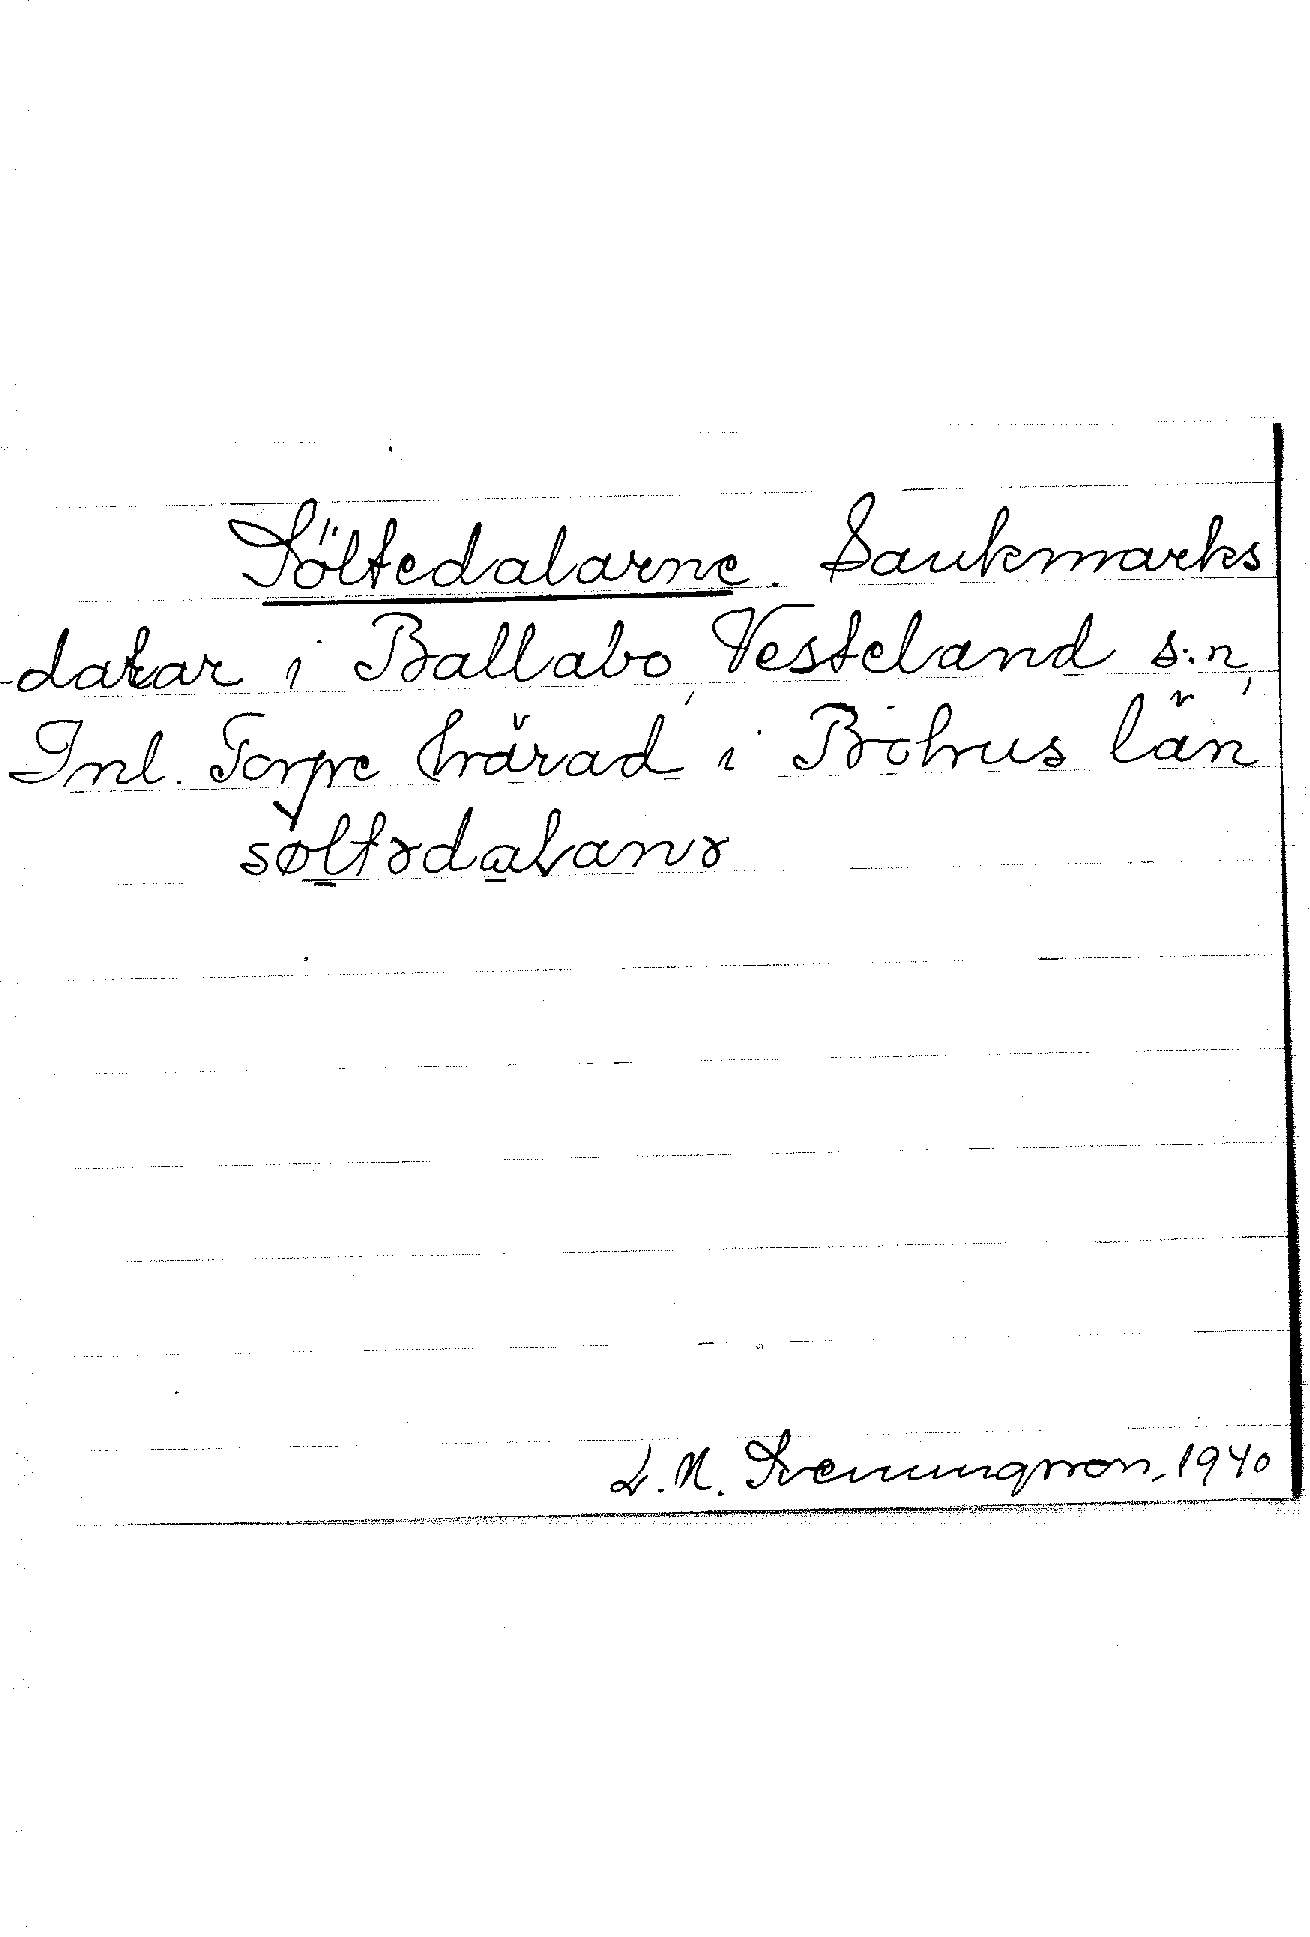 Söltedalarne. Saukmarks
dalar i Ballabo, Vesteland s:n,
Inl. Torpe härad i Bohus län
søltədalanə
D. N. Svenungsson, 1940